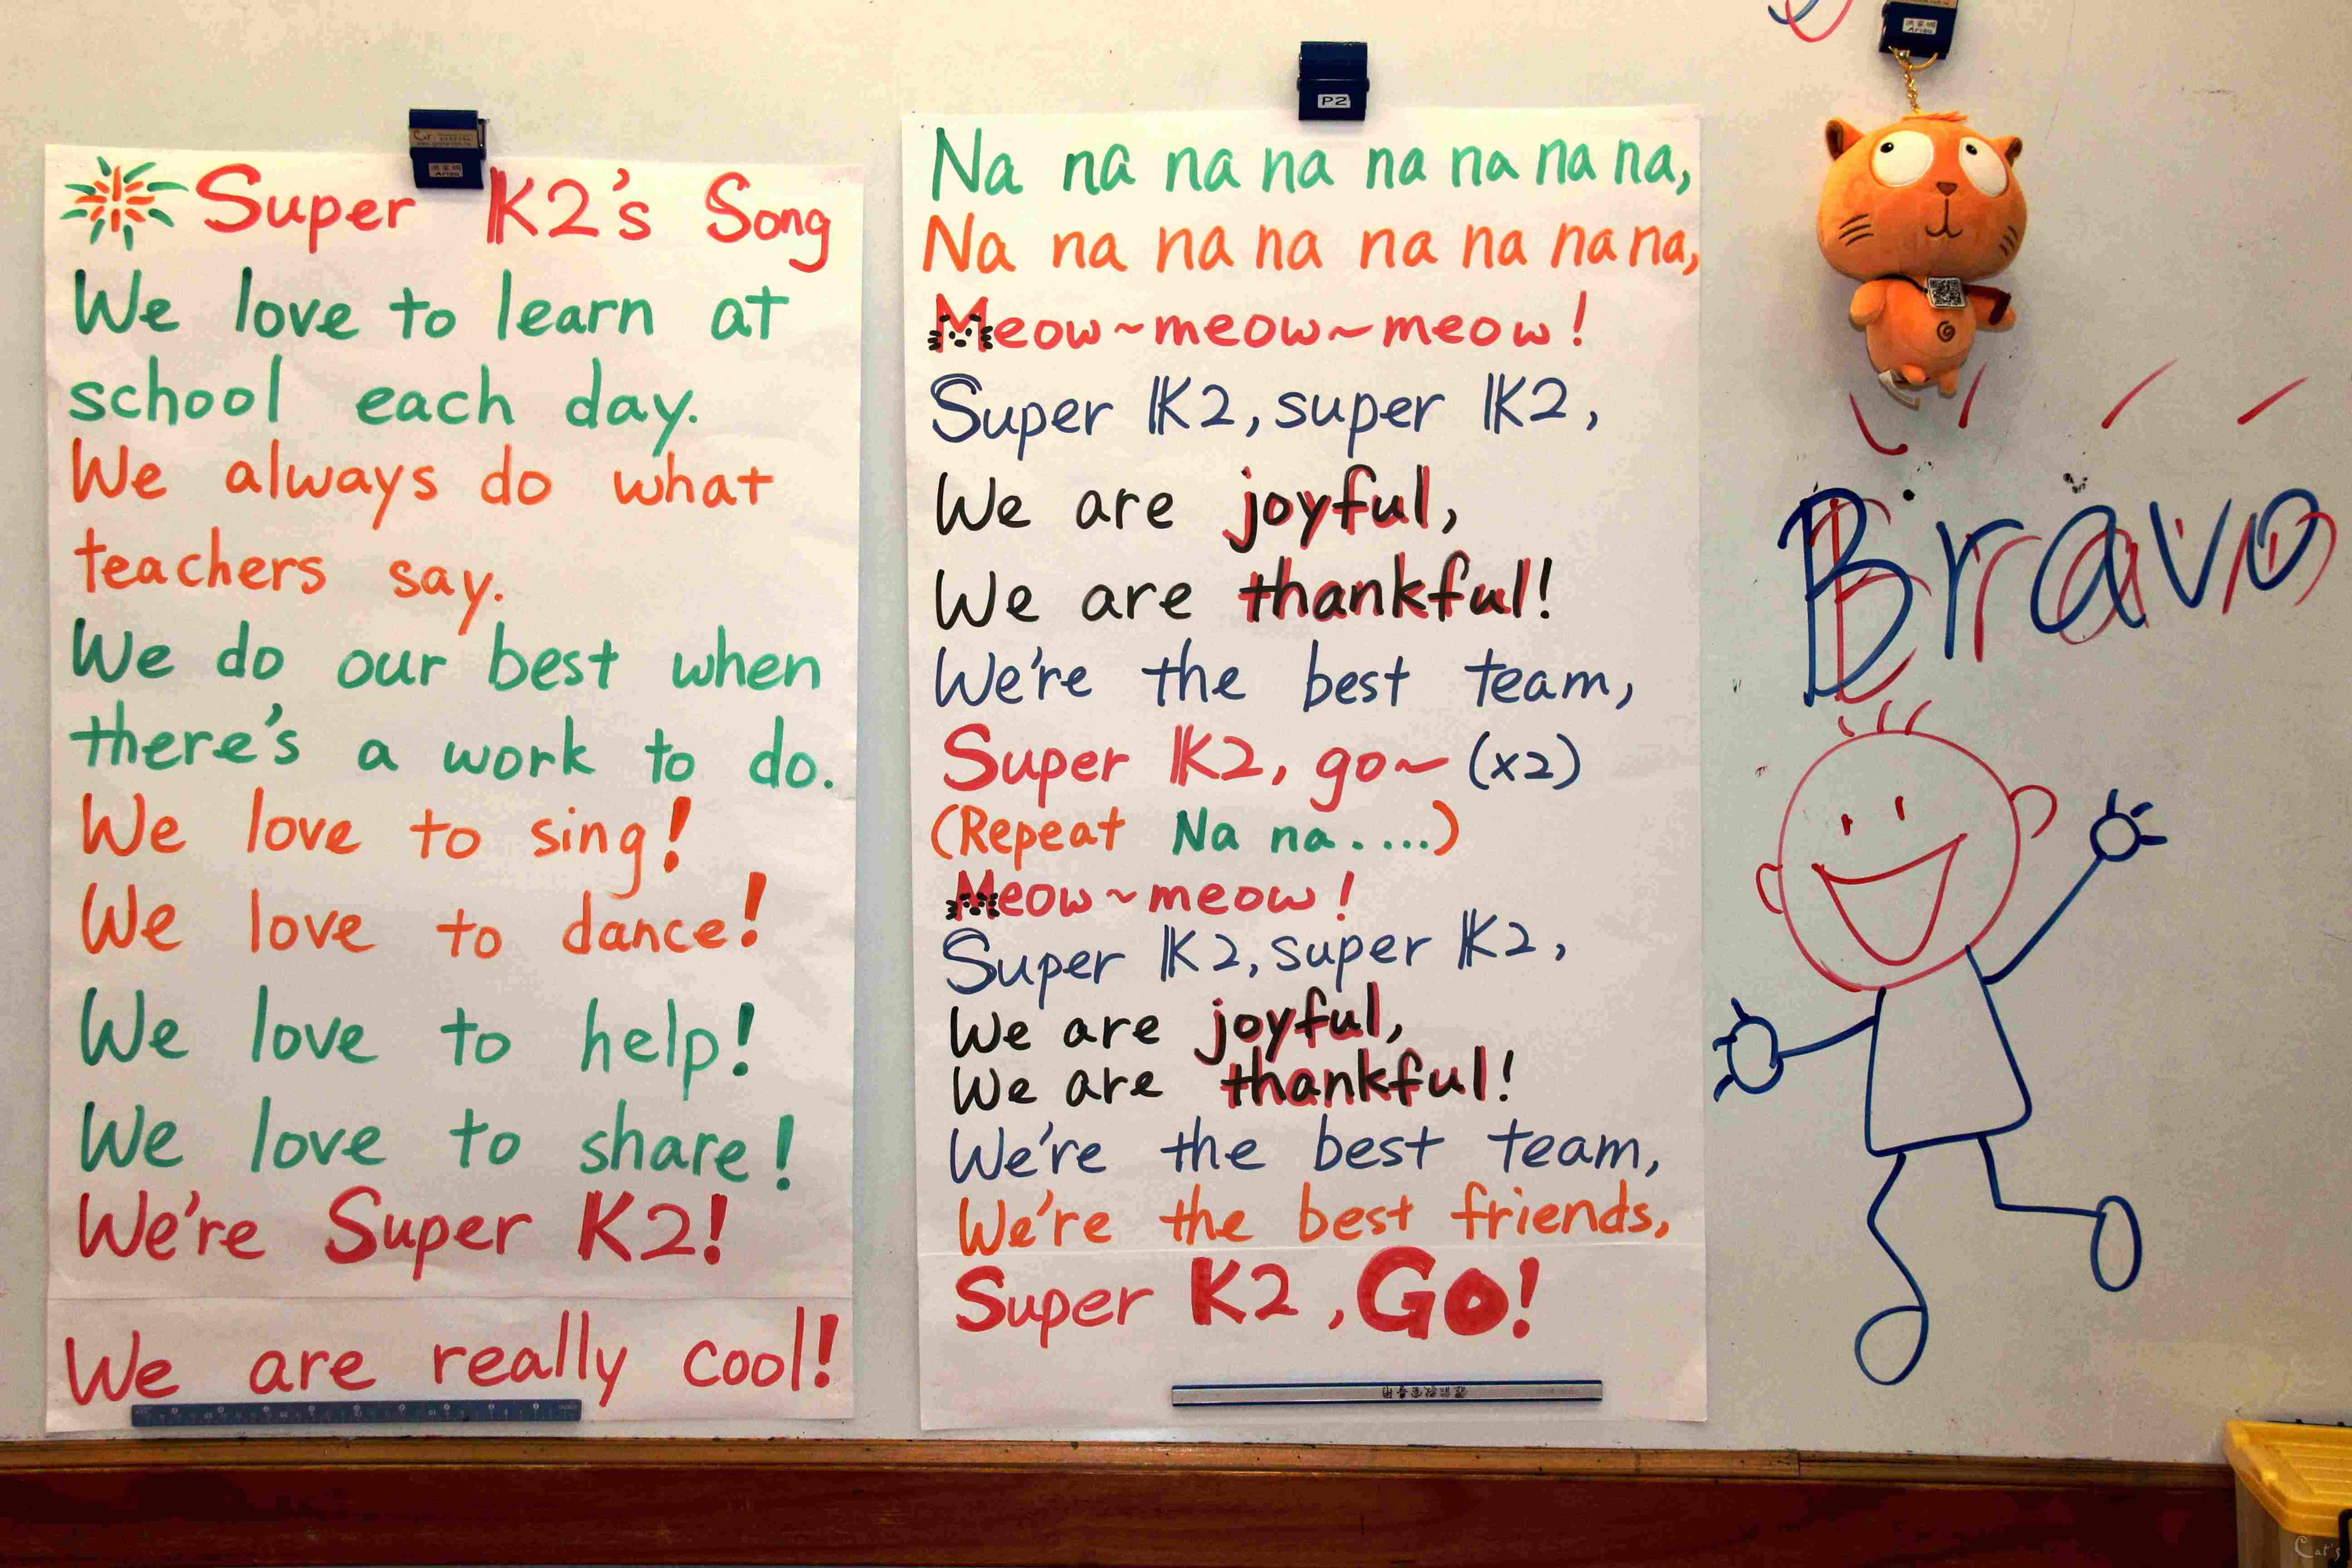 Super K2's Song
We love to learn at
school each day.
We always do what
teachers say.
We do our best when
there's a work to do.
We love to sing!
We love to dance!
We love to help!
We love to share!
We're Super K2!
We are really cool!
P2
Na na na na na na na na,
Na na na na na na na na,
Meow~meow~meow!
Super K2, super K2,
We are joyful,
We are thankful!
We're the best team,
Super K2, go~ (x2)
(Repeat Na na.....)
Meow~meow!
Super K2, super K2,
We are joyful,
We are thankful!
We're the best team,
We're the best friends,
Super K2, Go!
Bravo
Cat's